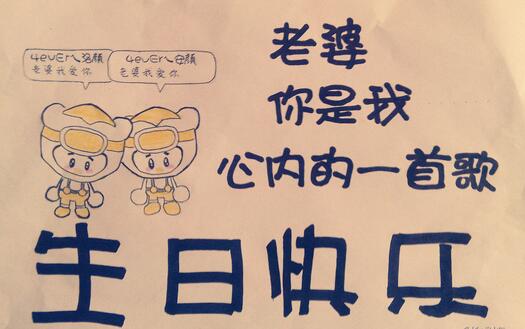 4evEr
老婆我爱你
4evEr
老婆我爱你
老婆
你是我
心内的一首歌
生日快乐